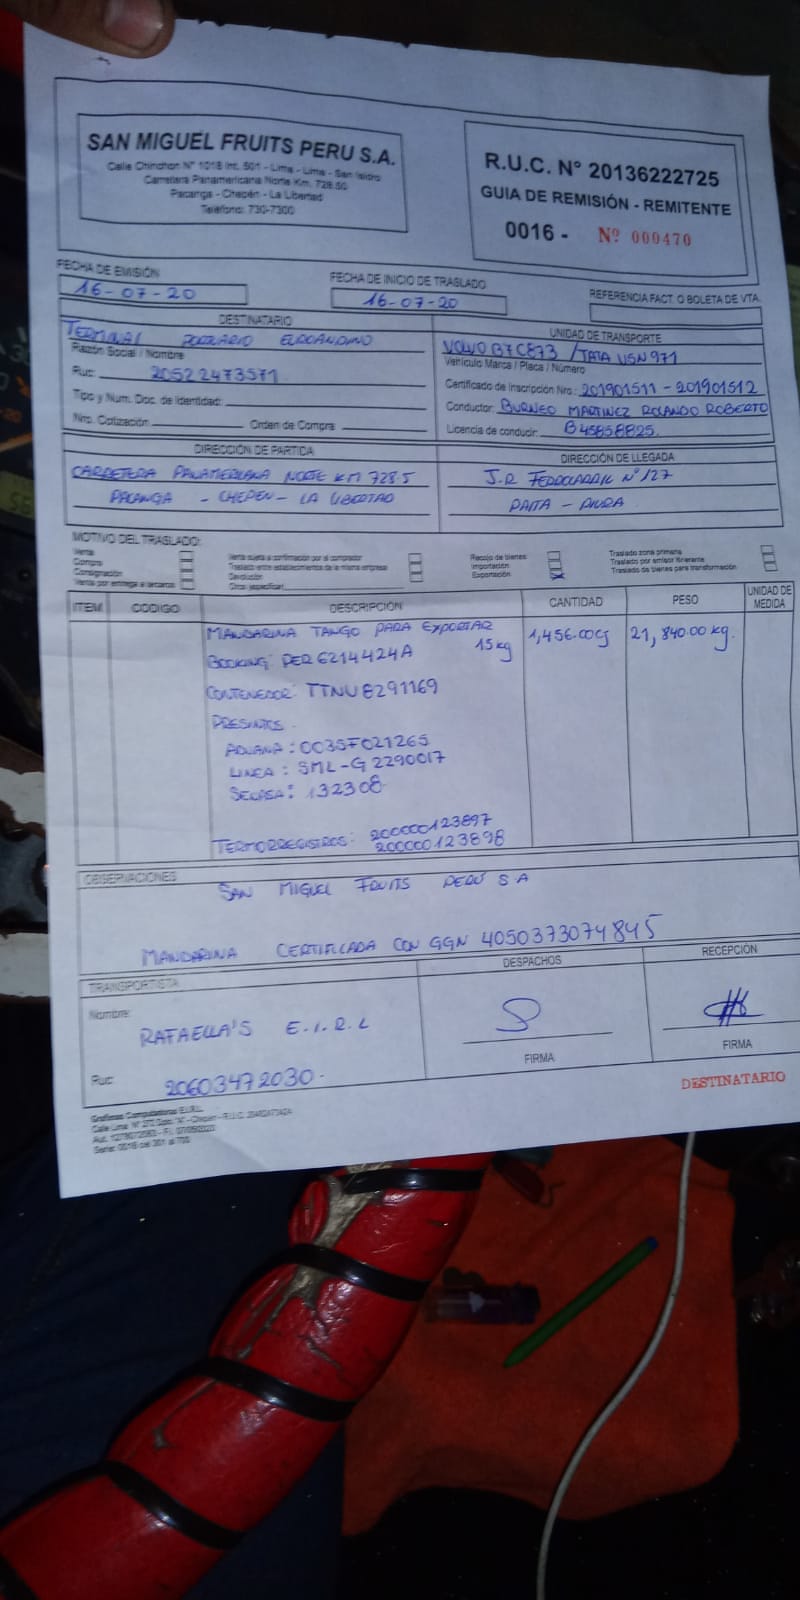 SAN MIGUEL FRUITS PERU S.A.
Calle Chinchon N° 1018 Int. 501 - Lima - Lima - San Isidro
Carretera Panamericana Norte Km. 728.50
Pacanga - Chepén - La Libertad
Teléfono: 730-7300
R.U.C. N° 20136222725
GUIA DE REMISIÓN - REMITENTE
0016 - Nº 000470
FECHA DE EMISIÓN
16-07-20
FECHA DE INICIO DE TRASLADO
16-07-20
REFERENCIA FACT. O BOLETA DE VTA.
DESTINATARIO
TERMINAL PORTUARIO EUROANDINO
Razón Social / Nombre
Ruc: 20522473571
Tipo y Num. Doc. de Identidad:
Nro. Cotización Orden de Compra
UNIDAD DE TRANSPORTE
VOLVO B7C873 / TATA USN971
Vehículo Marca / Placa / Número
Certificado de Inscripción Nro.: 201901511 - 201901512
Conductor: BURNEO MARTINEZ ROLANDO ROBERTO
Licencia de conducir: B45858825
DIRECCIÓN DE PARTIDA
CARRETERA PANAMERICANA NORTE KM 728.5
PACANGA - CHEPEN - LA LIBERTAD
DIRECCIÓN DE LLEGADA
J.R FERROCARRIL N°127
PAITA - PIURA
MOTIVO DEL TRASLADO:
Venta
Compra
Consignación
Venta por entrega a terceros
Venta sujeta a confirmación por el comprador
Traslado entre establecimientos de la misma empresa
Devolución
Otros (especificar)
Recojo de bienes
Importación
Exportación
Traslado zona primaria
Traslado por emisor itinerante
Traslado de bienes para transformación
ITEM CODIGO DESCRIPCIÓN CANTIDAD PESO UNIDAD DE MEDIDA
MANDARINA TANGO PARA EXPORTAR 1,456.00cj 21,840.00 kg.
15kg
BOOKING: PER6214424A
CONTENEDOR: TTNU8291169
PRESINTOS.
ADUANA: 0035F021265
LINEA: SML-G2290017
SECRSA: 132308
TERMORREGISTROS: 200000123897
200000123898
OBSERVACIONES
SAN MIGUEL FRUITS PERU S A
MANDARINA CERTIFICADA CON GGN 4050373074845
TRANSPORTISTA
Nombre:
RAFAELLA'S E.I.R.L
Ruc: 20603472030.
DESPACHOS
FIRMA
RECEPCIÓN
FIRMA
DESTINATARIO
Graficas Computadoras E.I.R.L.
Serie: 0016 del 301 al 700